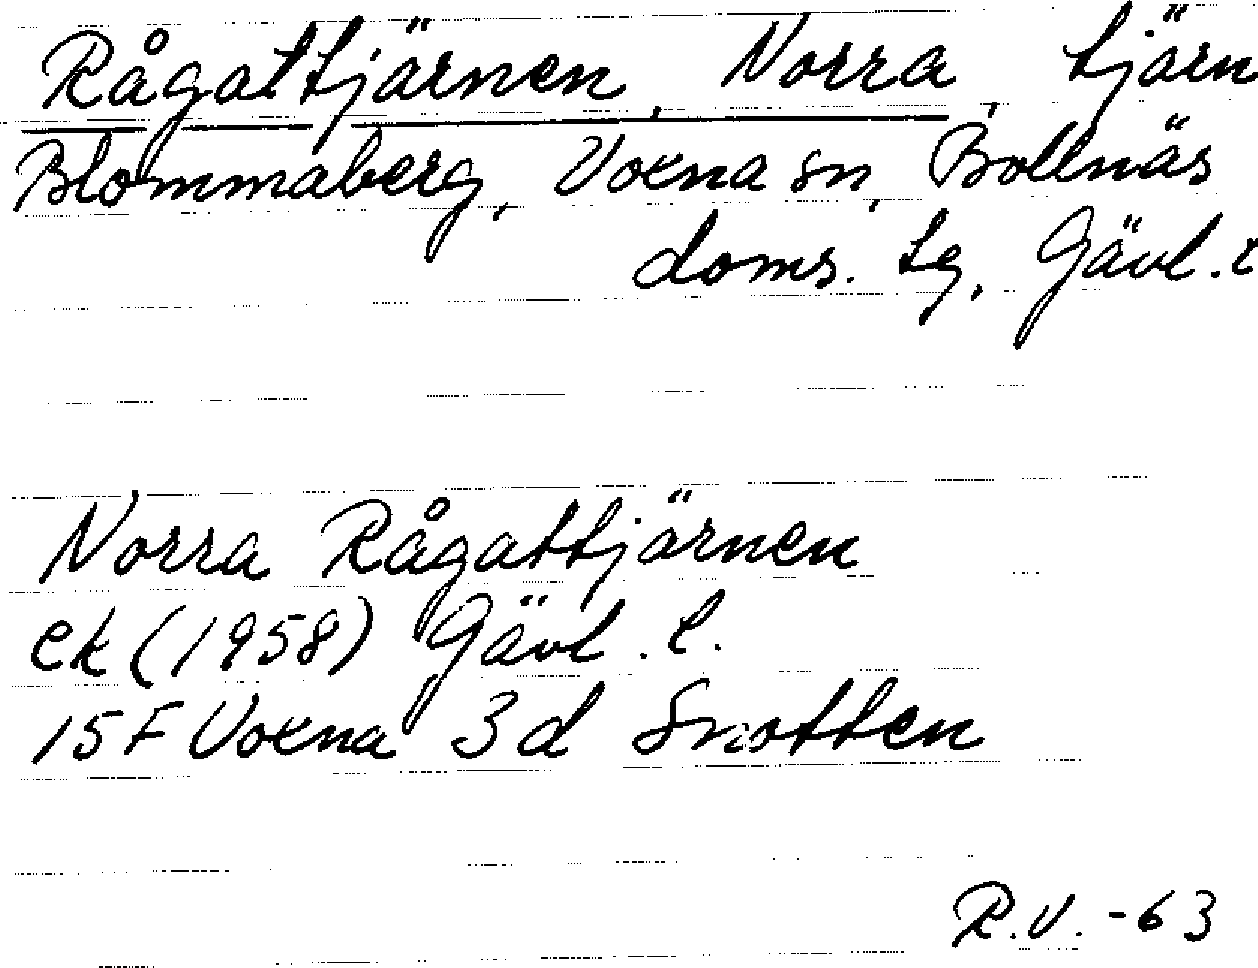 Rågattjärnen, Norra, tjärn
Blommaberg, Voxna sn, Bollnäs
doms. tg, Gävl. l
Norra Rågattjärnen
ek (1958) Gävl. l.
15F Voxna 3d Snotten
R.V. -63